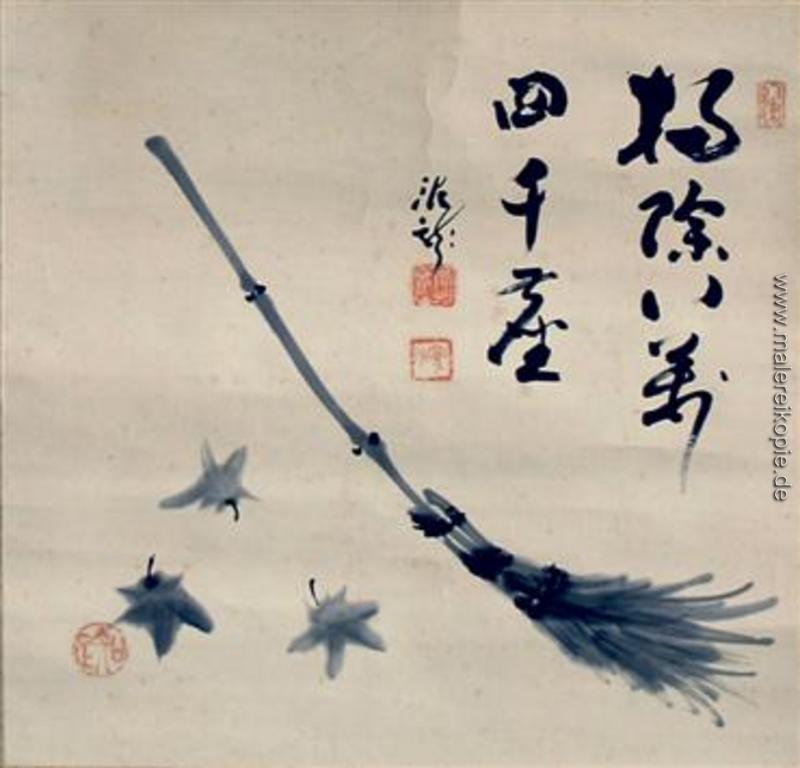 掃除八萬
四千塵
泥龍
www.malereikopie.de